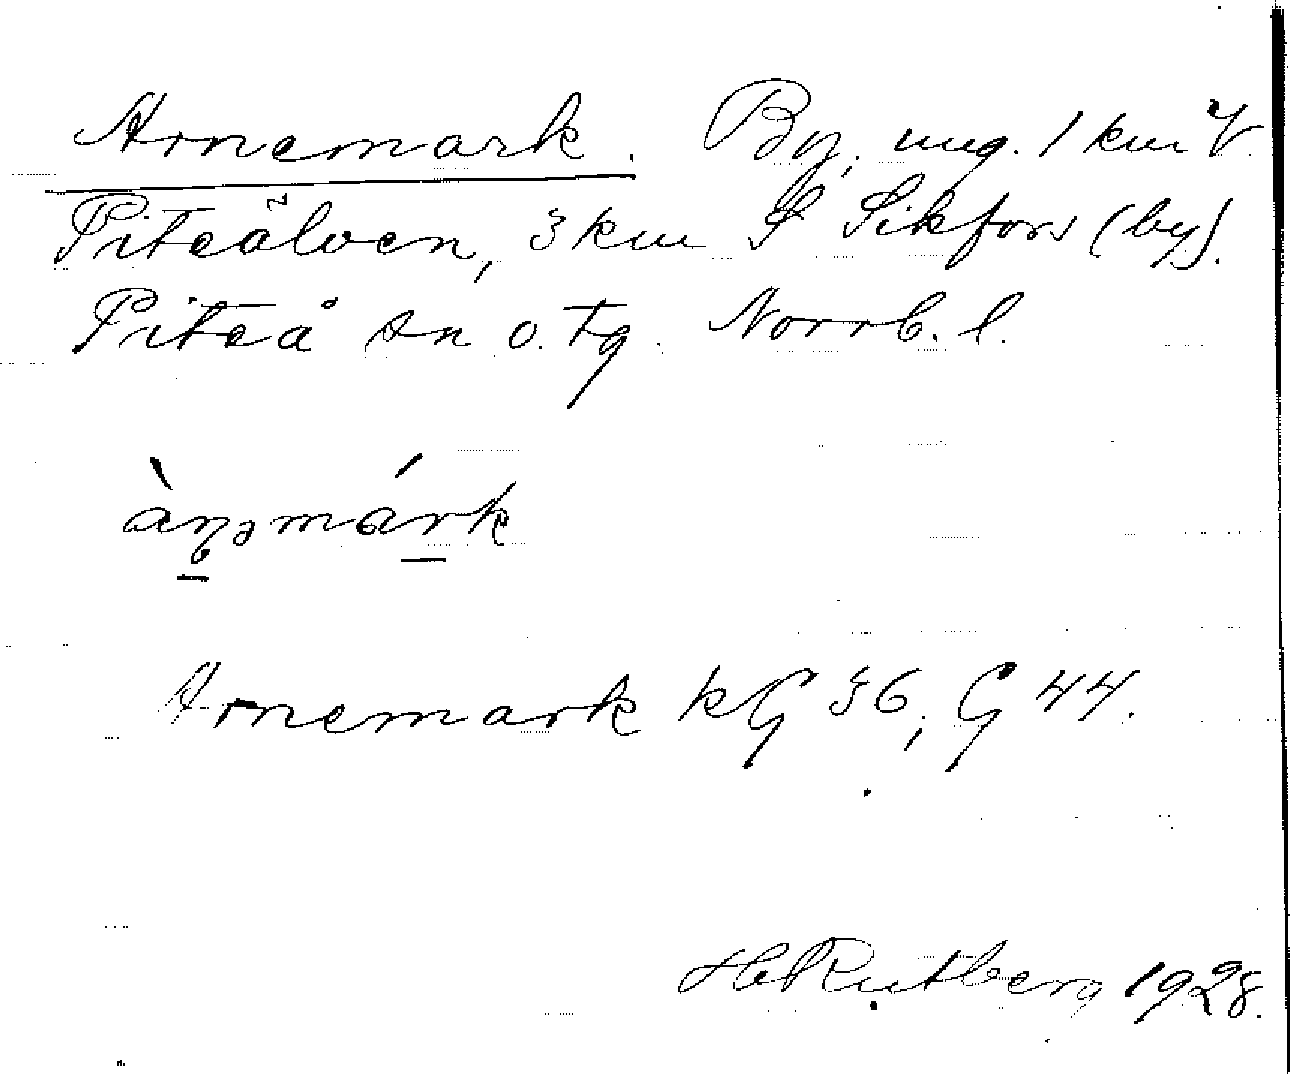 Arnemark. By, ung. 1 km V.
Piteälven, 3 km S Sikfors (by).
Piteå sn o. tg. Norrb. l.
àṉəmárk
Arnemark kG 36, G 44.
H Rutberg 1928.